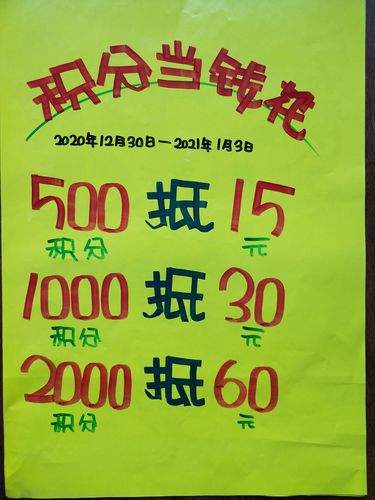 积分当钱花
2020年12月30日—2021年1月3日
500 抵 15
积分 元
1000 抵 30
积分 元
2000 抵 60
积分 元